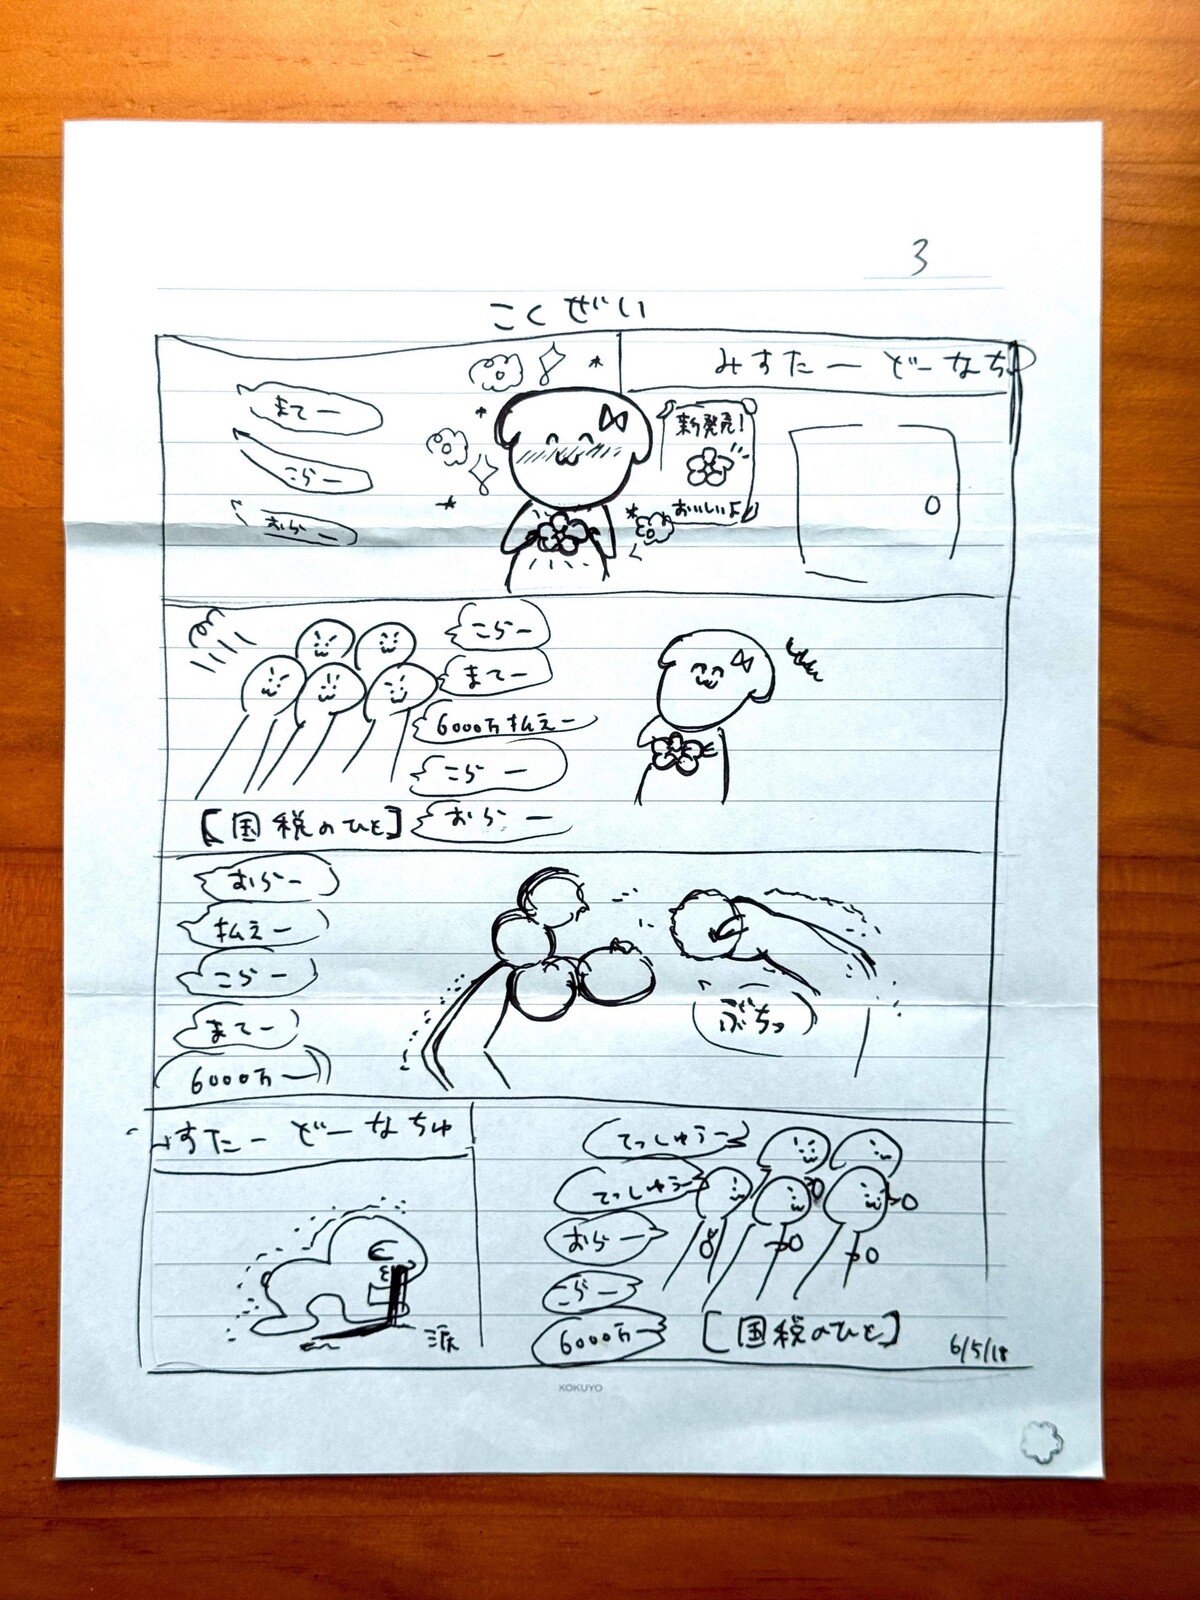 3
こくぜい
みすたーどーなちゅ
まてー
こらー
おらー
新発売!
おいしいよ
こらー
まてー
6000万払えー
こらー
おらー
【国税のひと】
おらー
払えー
こらー
まてー
6000万ー
ぶちっ
すたーどーなちゅ
涙
てっしゅうー
てっしゅうー
おらー
こらー
6000万ー
【国税のひと】
6/5/18
KOKUYO